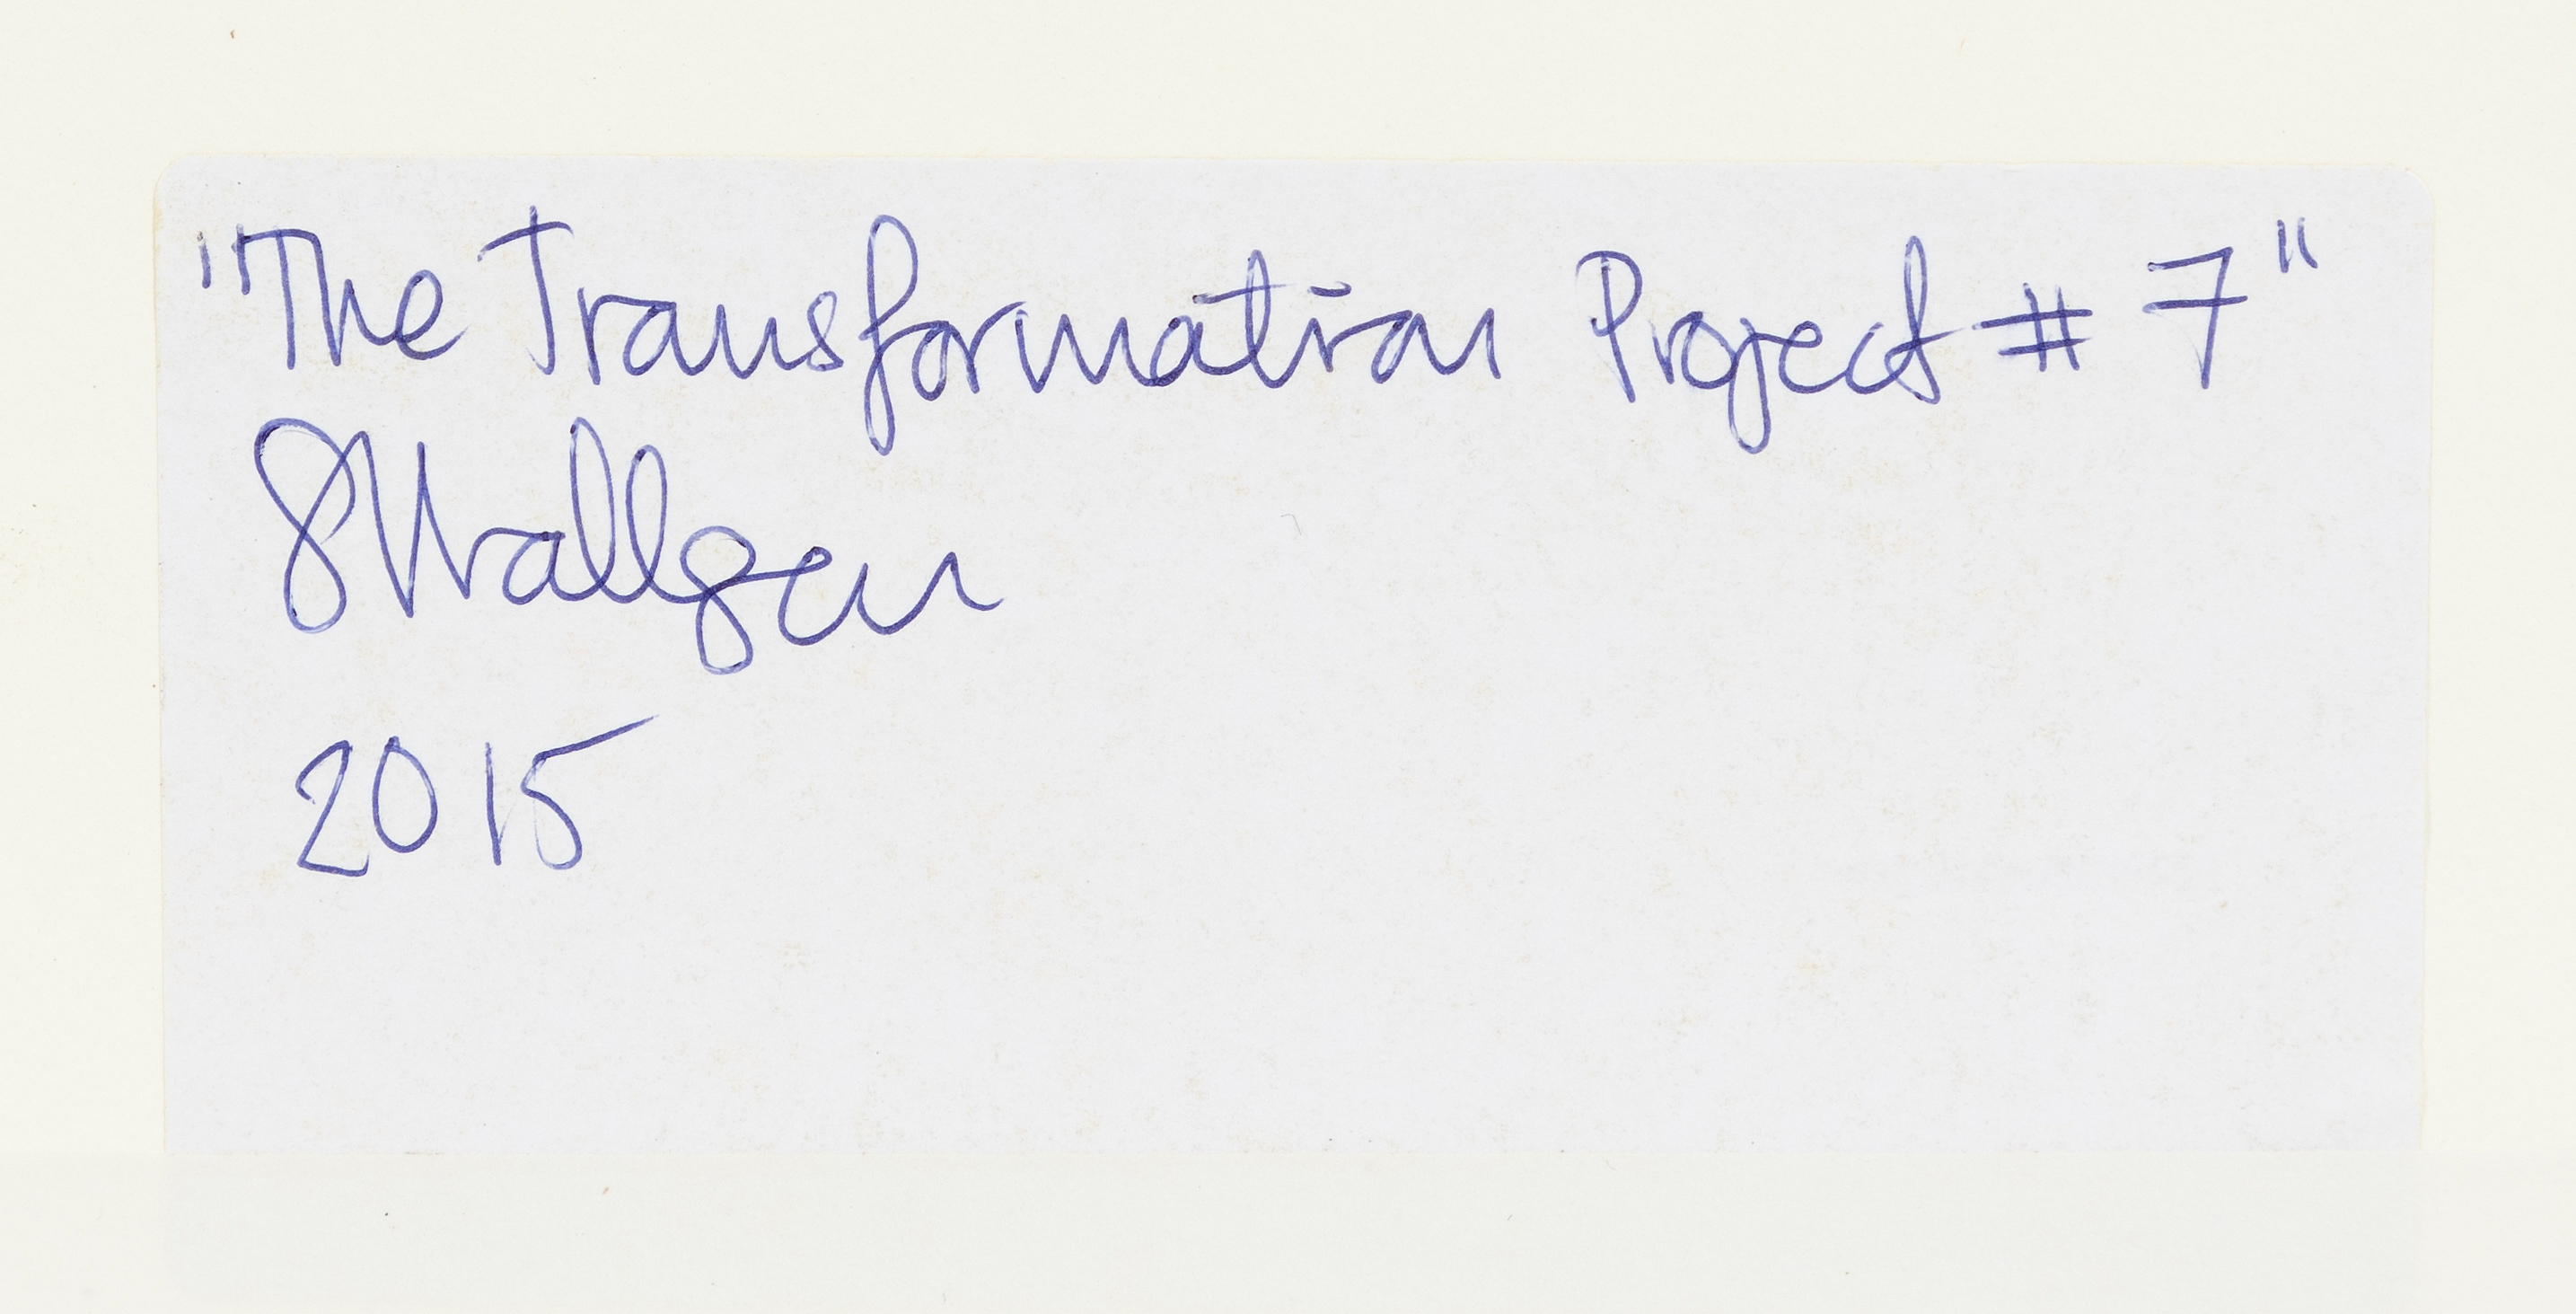 "The Transformation Project # 7"
SWallgren
2015